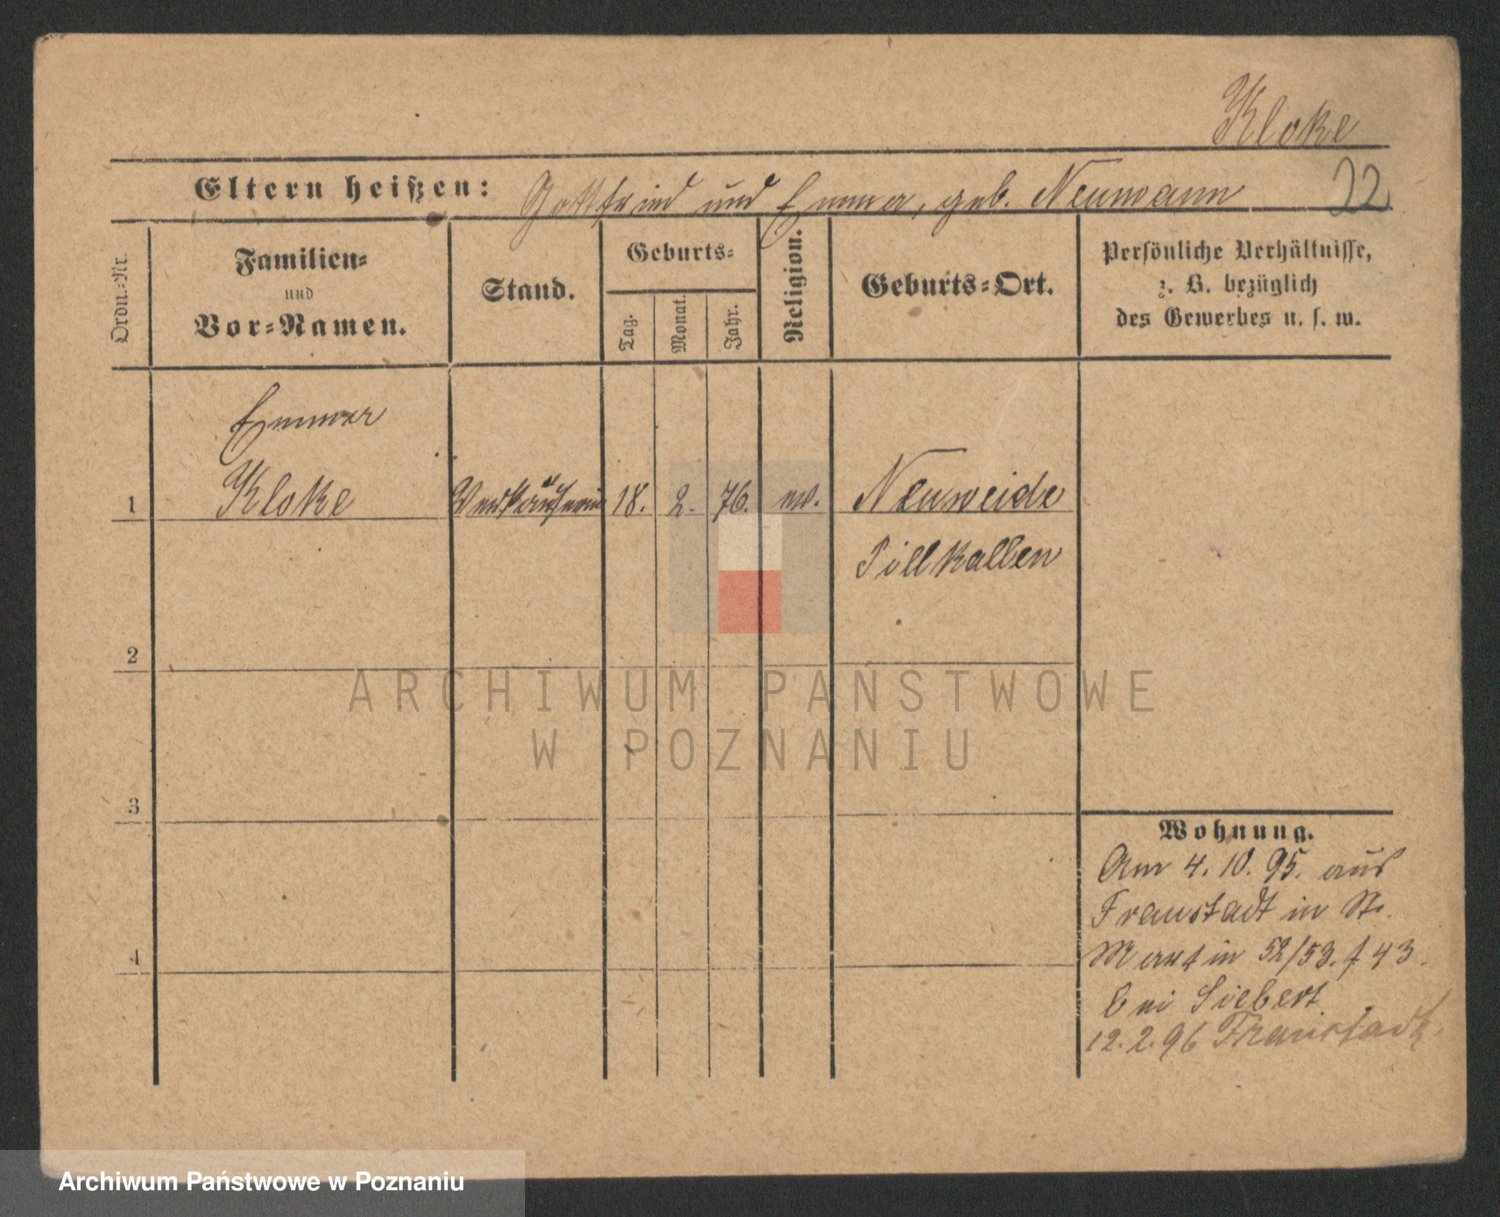 Kloke
Eltern heißen: Gottfried und Emma, geb. Neumann 22
Ordn.-Nr.
Familien-
und
Vor-Namen.
Stand.
Geburts-
Tag.
Monat.
Jahr.
Religion.
Geburts-Ort.
Persönliche Verhältnisse,
z. B. bezüglich
des Gewerbes u. s. w.
Emma
1 Kloke Verkäuferin 18. 2. 76. ev. Neuweide
Pillkallen
2
ARCHIWUM PAŃSTWOWE
W POZNANIU
3
Wohnung.
Am 4. 10. 95. aus
Fraustadt in St.
4
Martin 52/53. f 43.
bei Siebert
12. 2. 96 Fraustadt.
Archiwum Państwowe w Poznaniu